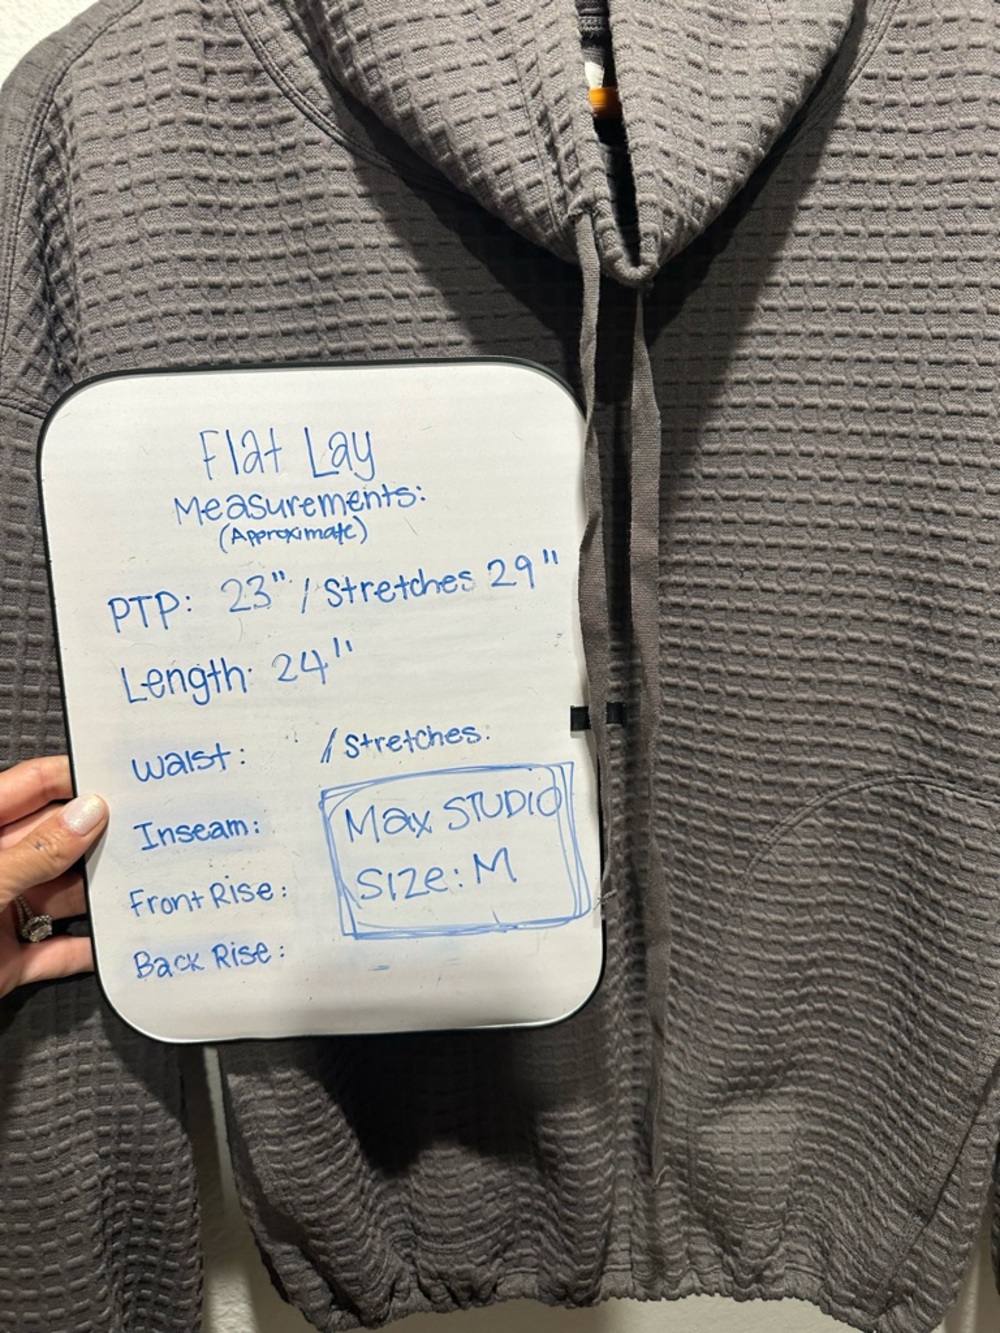 Flat Lay
Measurements:
(Approximate)
PTP: 23" / Stretches 29"
Length: 24"
Waist: / Stretches:
Inseam:
Front Rise:
Back Rise:
Max STUDIO
Size: M